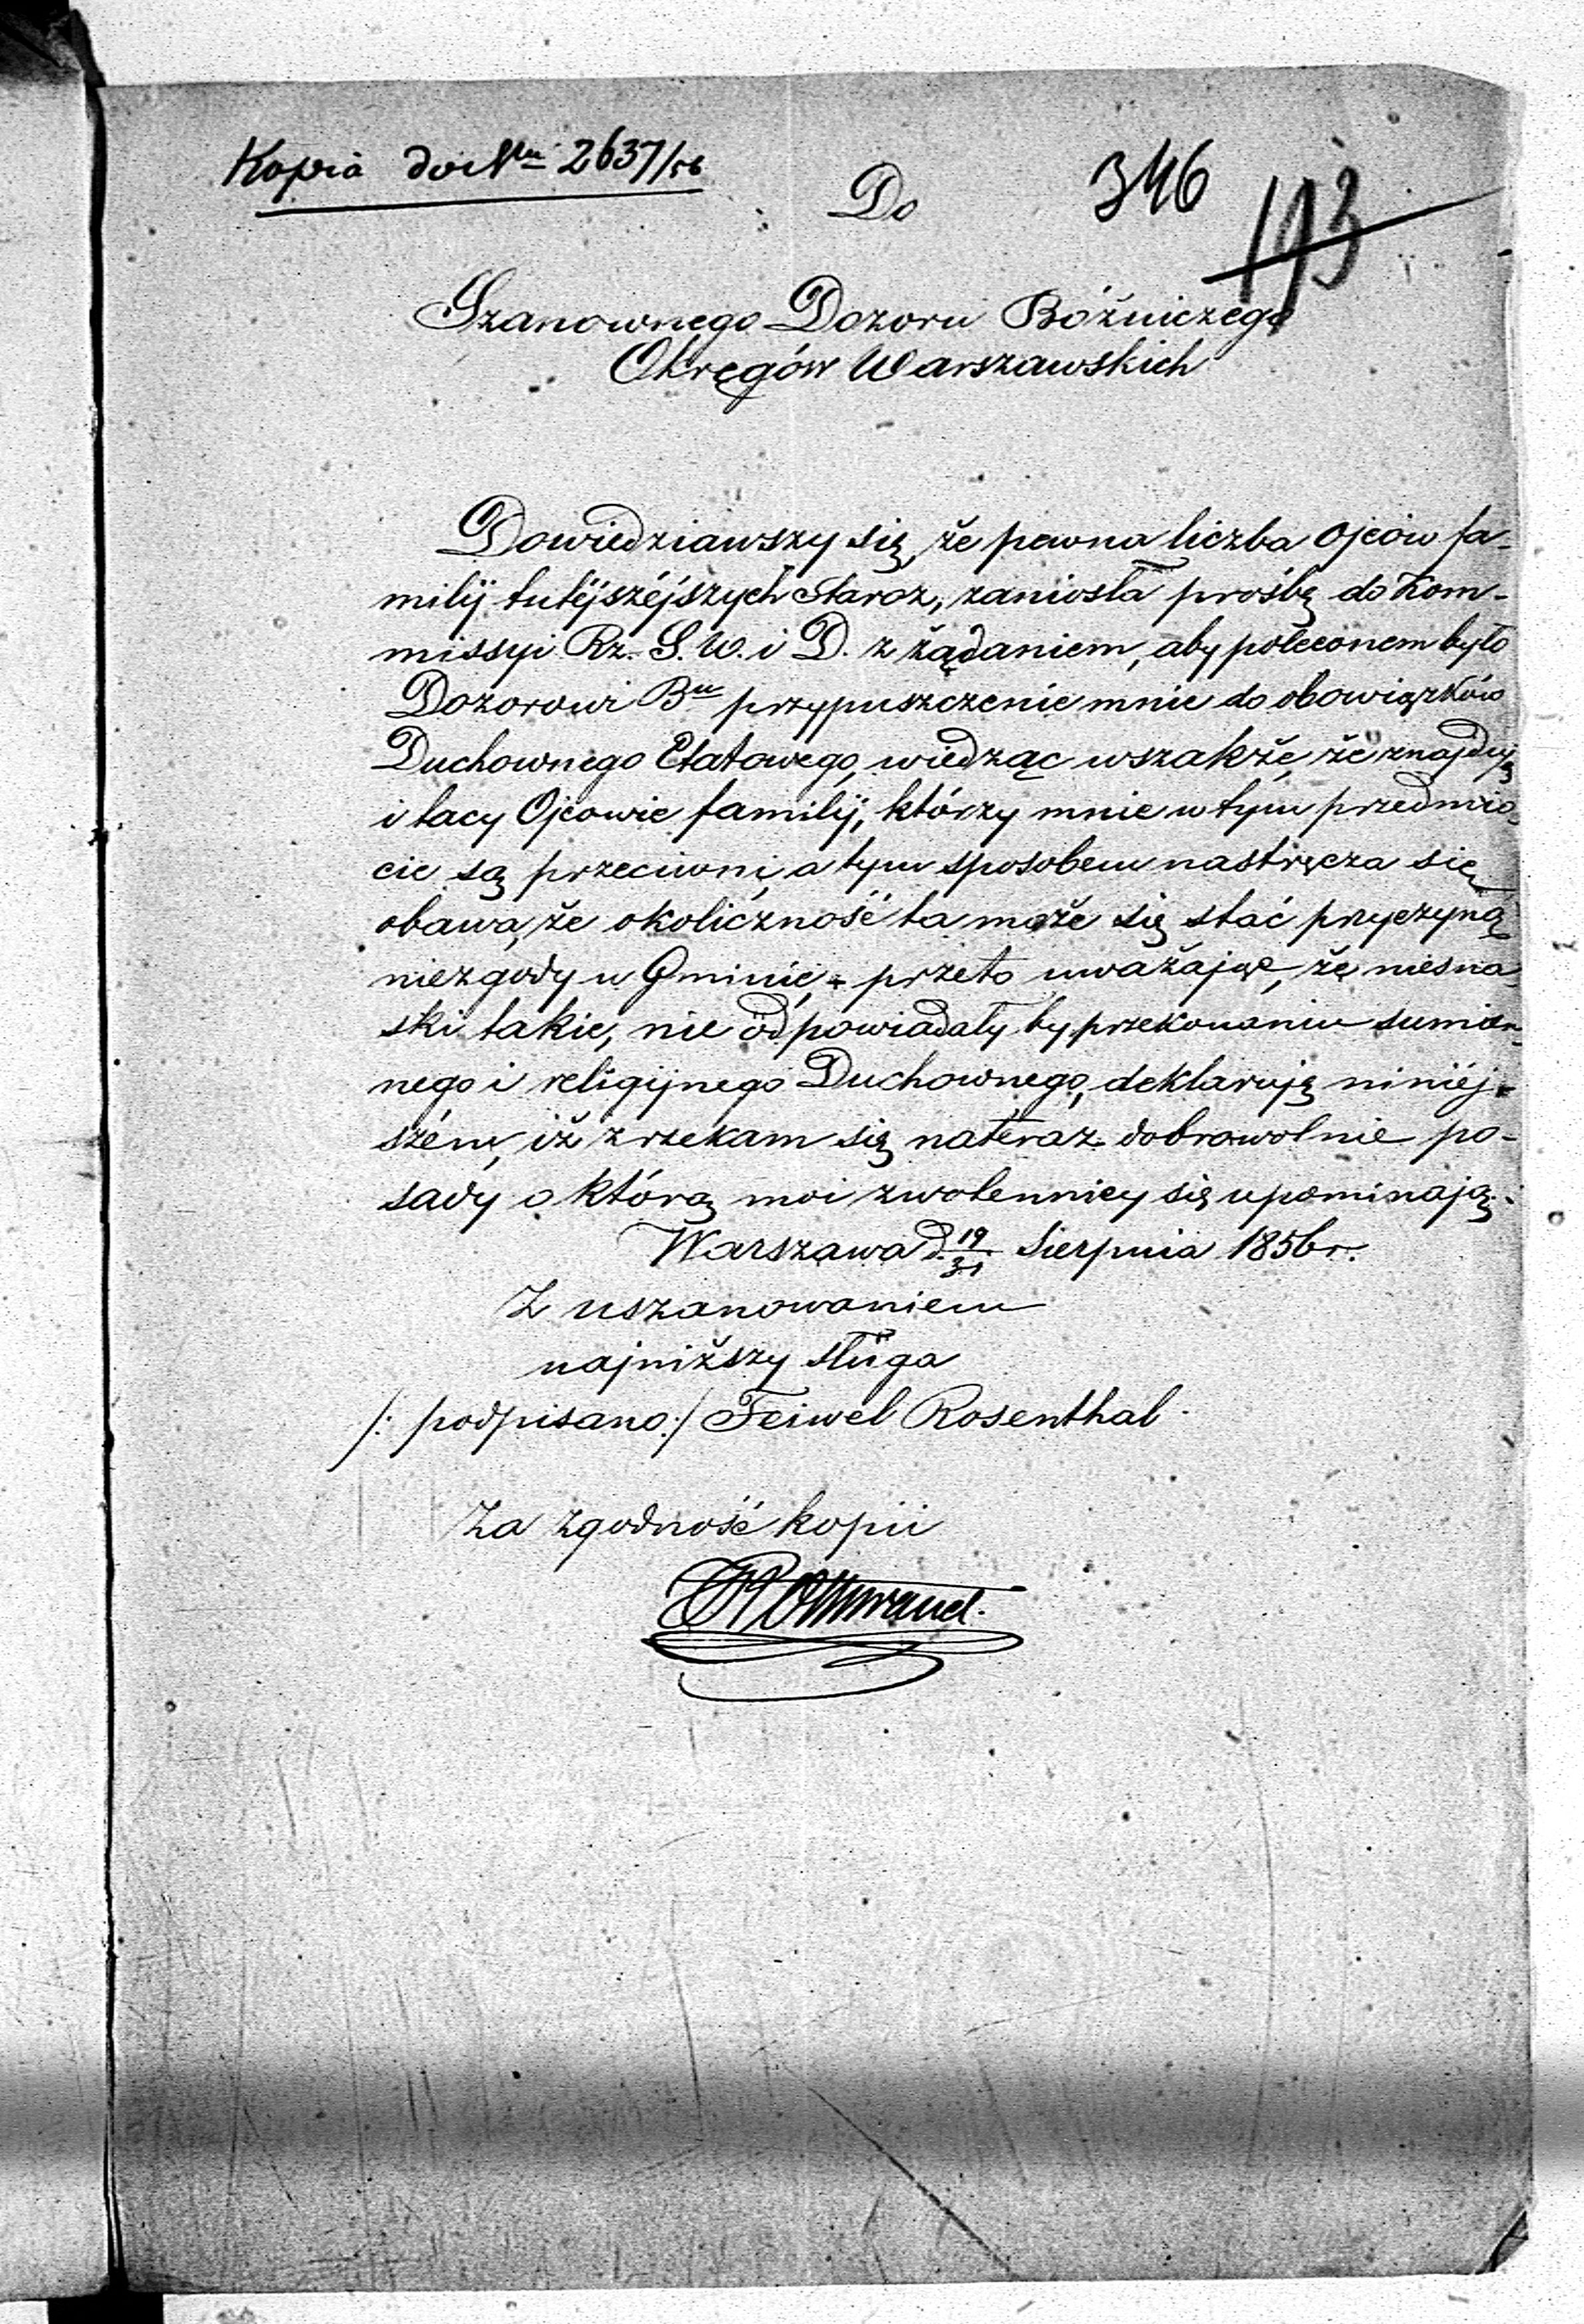 Kopia do Nru 2637/56
Do
346
193
Szanownego Dozoru Bóżniczego
Okręgów Warszawskich
Dowiedziawszy się, że pewna liczba Ojców fa-
milij tutéjszéjszych Staroz, zaniosła prośbę do Kom-
missyi Rz. S. W. i D. z żądaniem, aby poleconem było
Dozorowi Bmu przypuszczenie mnie do obowiązków
Duchownego Etatowego, wiedząc wszakże, że znajdują
i tacy Ojcowie familij, którzy mnie w tym przedmio-
cie są przeciwni, a tym sposobem nastręcza się
obawa, że okoliczność ta może się stać przyczyną
niezgody w Gminie, - przeto uważając, że niesna-
ski takie, nie odpowiadały by przekonaniu sumien-
nego i religijnego Duchownego, deklaruję niniéj-
szém, iż zrzekam się nateraz dobrowolnie po-
sady o którą moi zwolennicy się upominają.
Warszawa d. 19/31 Sierpnia 1856 r.
Z uszanowaniem
najniższy sługa
/: podpisano :/ Feiwel Rosenthal.
Za zgodność kopii